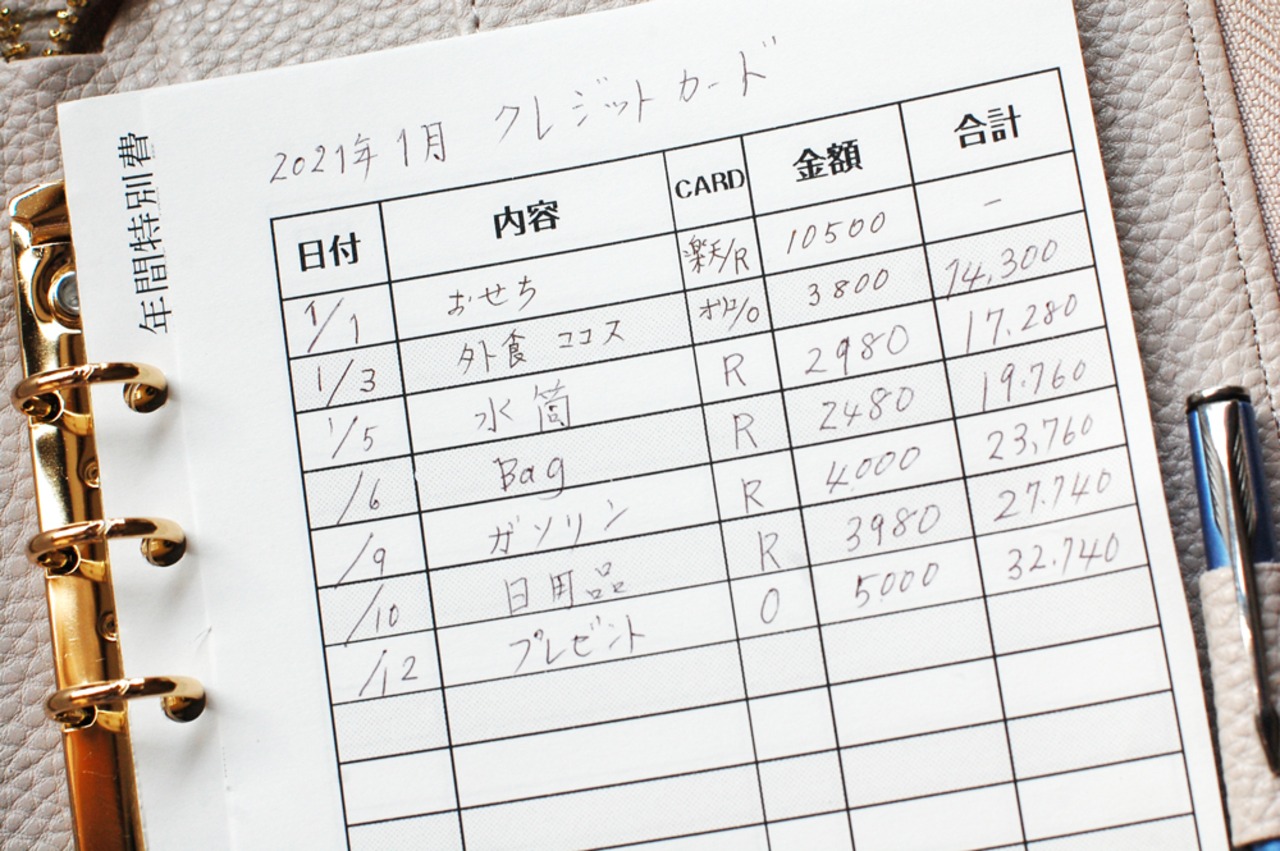 年間特別費
2021年1月 クレジットカード
日付 内容 CARD 金額 合計
1/1 おせち 楽天/R 10500 -
1/3 外食 ココス オリコ/O 3800 14,300
1/5 水筒 R 2980 17.280
/6 Bag R 2480 19.760
/9 ガソリン R 4.000 23,760
/10 日用品 R 3980 27.740
/12 プレゼント O 5.000 32.740